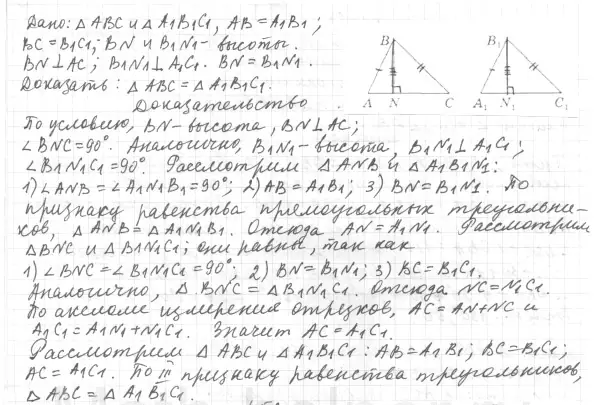 Дано: △ABC и △A1B1C1, AB=A1B1;
BC=B1C1; BN и B1N1 - высоты.
BN⊥AC; B1N1⊥A1C1. BN=B1N1.
Доказать: △ABC=△A1B1C1.
Доказательство
B
A N C
B1
A1 N1 C1
По условию, BN-высота, BN⊥AC;
∠BNC=90°. Аналогично, B1N1-высота, B1N1⊥A1C1;
∠B1N1C1=90°. Рассмотрим △ANB и △A1B1N1:
1)∠ANB=∠A1N1B1=90°; 2)AB=A1B1; 3)BN=B1N1. По
признаку равенства прямоугольных треугольни-
ков, △ANB=△A1N1B1. Отсюда AN=A1N1. Рассмотрим
△BNC и △B1N1C1; они равны, так как
1)∠BNC=∠B1N1C1=90°; 2)BN=B1N1; 3)BC=B1C1.
Аналогично, △BNC=△B1N1C1. Отсюда NC=N1C1.
По аксиоме измерения отрезков, AC=AN+NC и
A1C1=A1N1+N1C1. Значит AC=A1C1.
Рассмотрим △ABC и △A1B1C1: AB=A1B1; BC=B1C1;
AC=A1C1. По III признаку равенства треугольников,
△ABC=△A1B1C1.